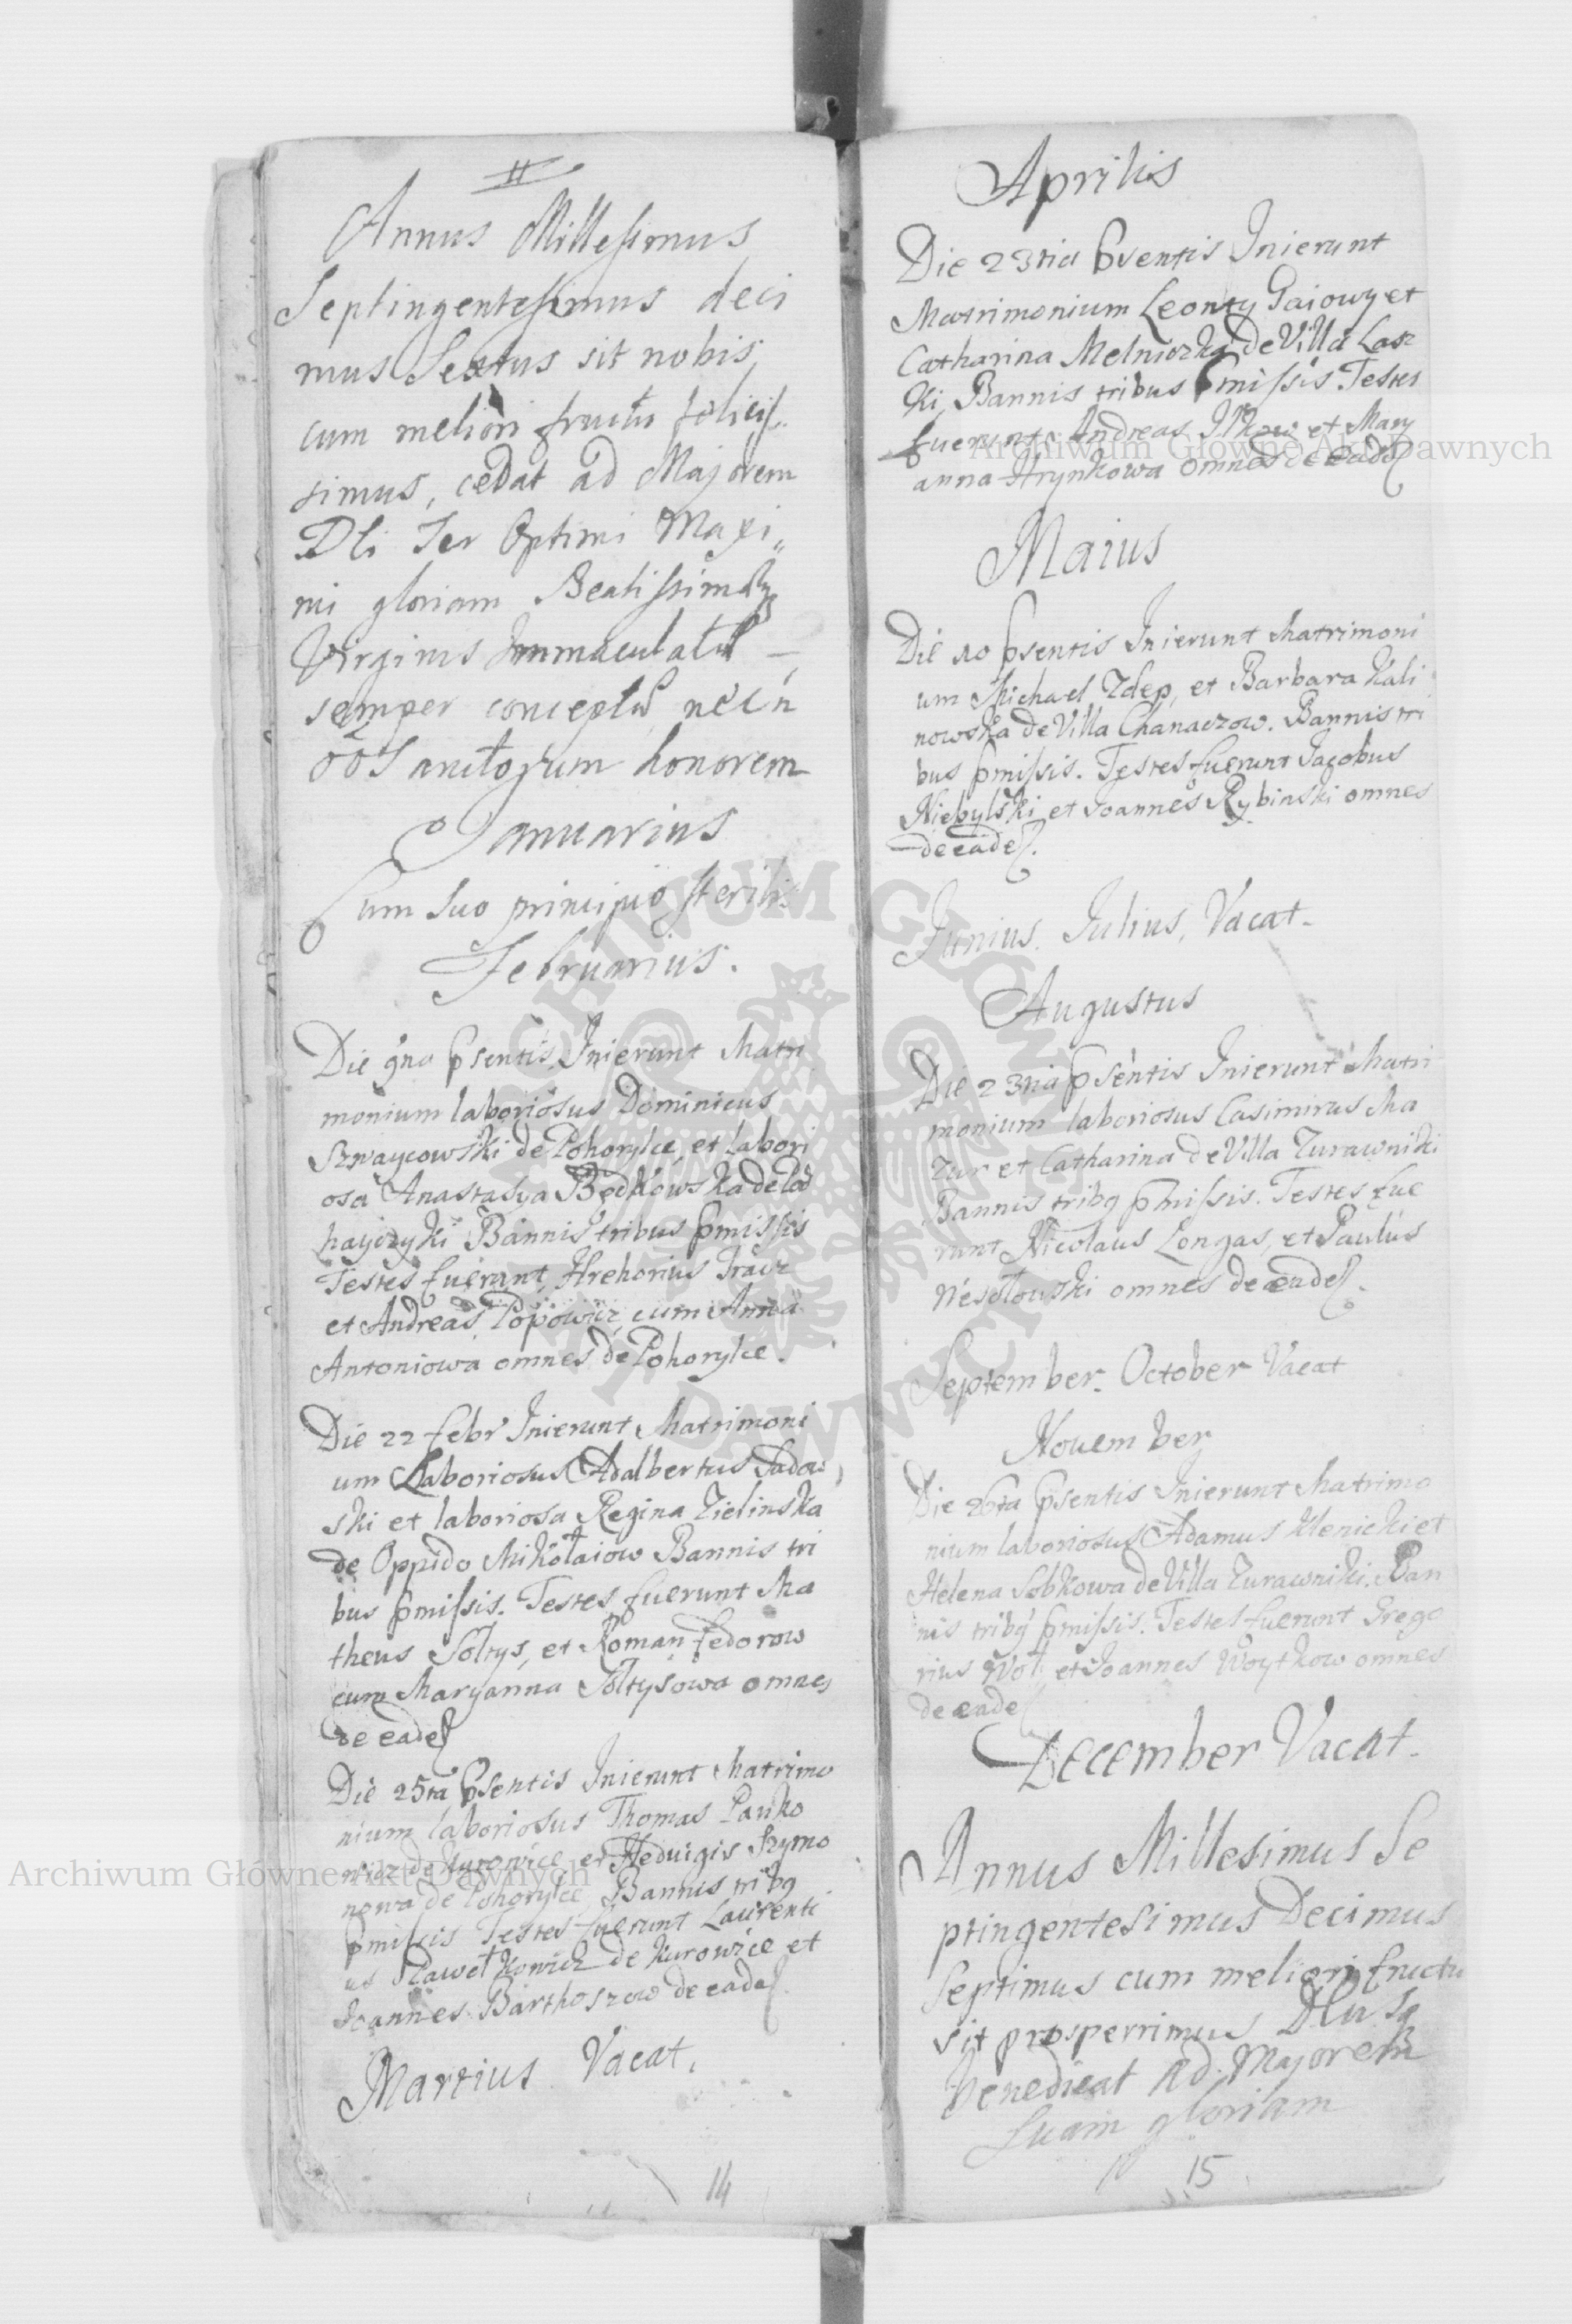 II
Annus Millesimus
Septingentesimus deci
mus Sextus sit nobis,
cum meliori fructu felicis„
simus, cedat ad Majorem
DEi Ter Optimi Maxi„
mi gloriam Beatissimæ
Virginis Immaculatæ —
semper conceptæ nec n̄
oo Sanctorum honorem
Januarius
Cum suo principio sterilis
Februarius.
Die 9na psentis Inierunt Matri
monium laboriosus Dominicus
Szwaycowski de Pohorylce, et labori
osa Anastasya Będkowska de Pod
hayczyki Bannis tribus pmissis
Testes fuerunt Hrehorius Kracz
et Andreas Popowicz cum Anna
Antoniowa omnes de Pohorylce.
Die 22 febr Inierunt Matrimoni
um Laboriosus Adalbertus Sadow
ski et laboriosa Regina Zielinska
de Oppido Mikołaiow Bannis tri
bus pmissis. Testes fuerunt Ma
theus Sołtys, et Roman fedorow
cum Maryanna Sołtysowa omnes
de eade
Die 25ta psentis Inierunt Matrimo
nium laboriosus Thomas Pawko
wicz de Kurowice et Hedvigis Szymo
nowa de Pohorylce Bannis tribq
pmissis Testes fuerunt Laurenti
us Pawełkowicz de Kurowice et
Joannes Barthoszow de eade
Martius Vacat.
14
Aprilis
Die 23tia psentis Inierunt
Matrimonium Leonty Gaiowy et
Catharina Melniczka de Villa Lasz
ki Bannis tribus pmissis Testes
fuerunt Andreas Ilkow et Mary
anna Hrynkowa omnes de eade
Maius
Die 10 psentis Inierunt Matrimoni
um Michael Zdep, et Barbara Kali
nowska de Villa Chanaczow. Bannis tri
bus pmissis. Testes fuerunt Jacobus
Niebylski et Joannes Rybinski omnes
de eade.
Junius. Julius, Vacat.
Augustus
Die 23tia psentis Inierunt Matri
monium laboriosus Casimirus Ma
zur et Catharina de Villa Zurawniki
Bannis tribq pmissis. Testes fue
runt Nicolaus Longas, et Paulus
Wesołowski omnes de eade.
September. October Vacat
Nouember
Die 26ta psentis Inierunt Matrimo
nium laboriosus Adamus Klenicki et
Helena Sobkowa de Villa Zurawniki. Ban
nis tribq pmissis. Testes fuerunt Grego
rius Woł et Joannes Woytkow omnes
de eade
December Vacat.
Annus Millesimus Se
ptingentesimus Decimus
Septimus cum meliori fructu
sit prosperrimus
benedicat Ad Majorem
Suam gloriam
15
Archiwum Główne Akt Dawnych
Archiwum Główne Akt Dawnych
ARCHIWUM GŁÓWNE AKT DAWNYCH